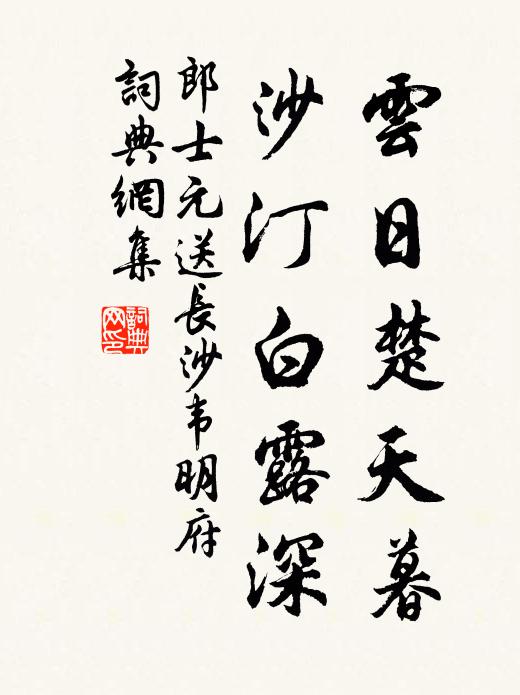 雲日楚天暮
沙汀白露深
郎士元送長沙韦明府
詞典網集
詞典网印